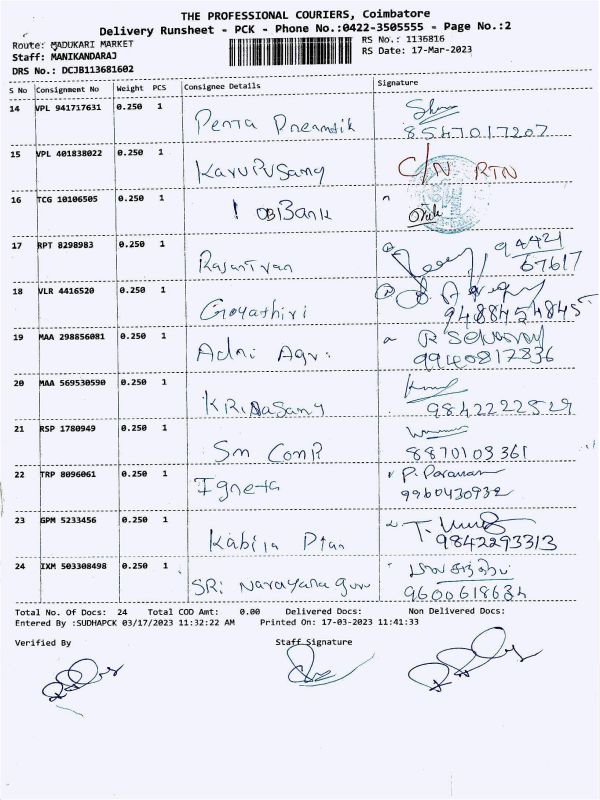 THE PROFESSIONAL COURIERS, Coimbatore
Delivery Runsheet - PCK - Phone No.:0422-3505555 - Page No.:2
Route: MADUKARI MARKET
RS No.: 1136816
Staff: MANIKANDARAJ
RS Date: 17-Mar-2023
DRS No.: DCJB113681602
S No Consignment No Weight PCS Consignee Details Signature
14 VPL 941717631 0.250 1
8547017207
15 VPL 401838022 0.250 1 Karupusamy C/N RTN
16 TCG 10106505 0.250 1 IOB Bank
17 RPT 8298983 0.250 1 94421
67617
18 VLR 4416520 0.250 1 Gayathiri
9488454845
19 MAA 298856081 0.250 1
9940817836
20 MAA 569530590 0.250 1
9842222529
21 RSP 1780949 0.250 1 Sm
8870103361
22 TRP 8096061 0.250 1
9960430932
23 GPM 5233456 0.250 1
9842293313
24 IXM 503308498 0.250 1 SRi Narayana guru
9600618634
Total No. Of Docs: 24 Total COD Amt: 0.00 Delivered Docs: Non Delivered Docs:
Entered By :SUDHAPCK 03/17/2023 11:32:22 AM Printed On: 17-03-2023 11:41:33
Verified By Staff Signature